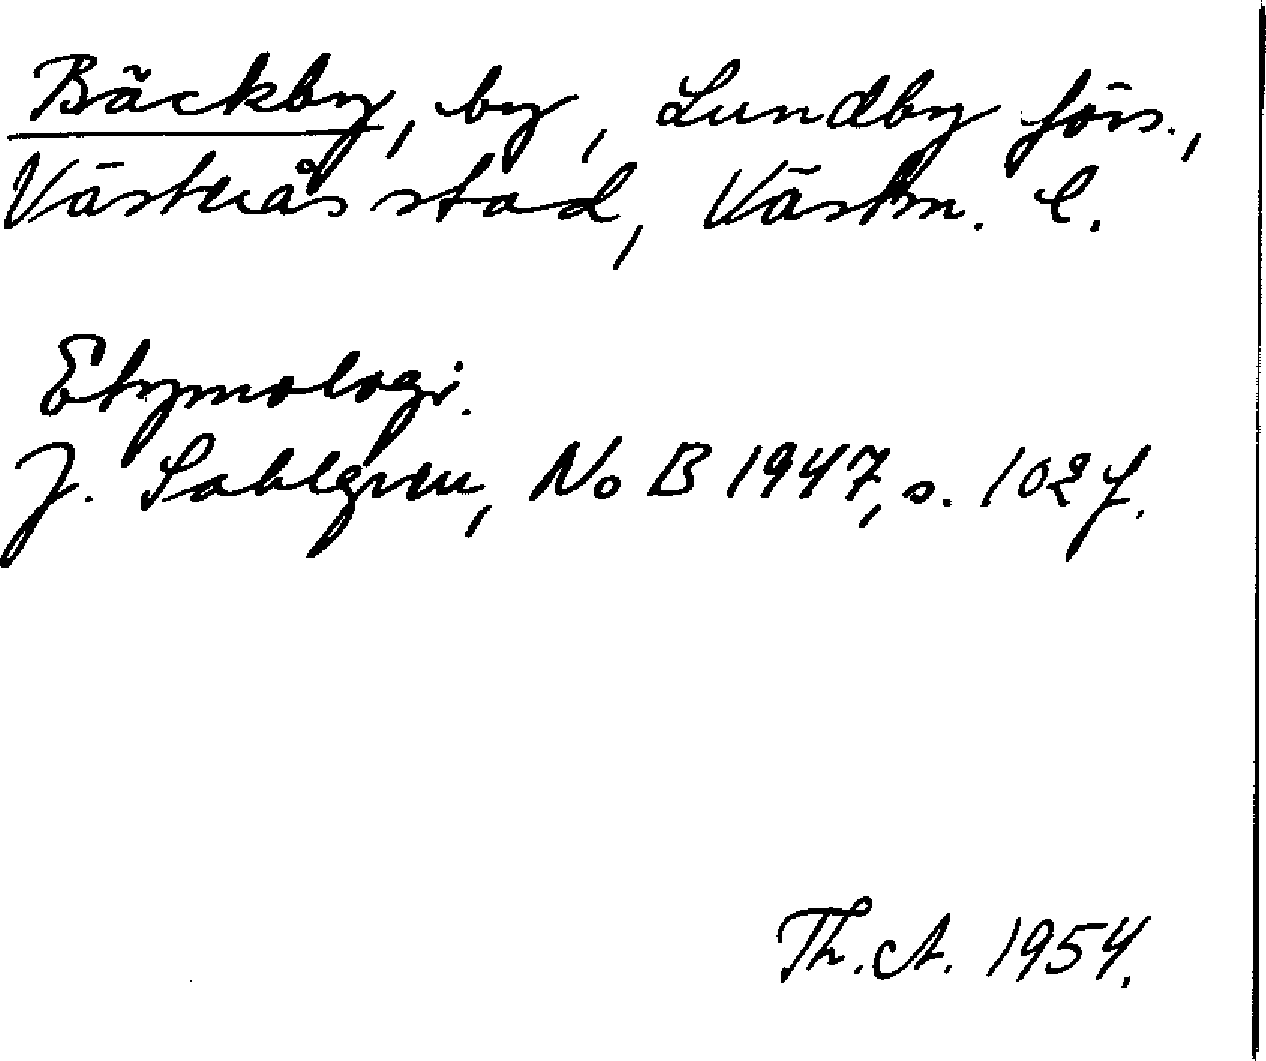 Bäckby, by, Lundby förs.,
Västerås stad, Västm. l.
Etymologi.
J. Sahlgren, NoB 1947, s. 102 f.
Th. A. 1954.